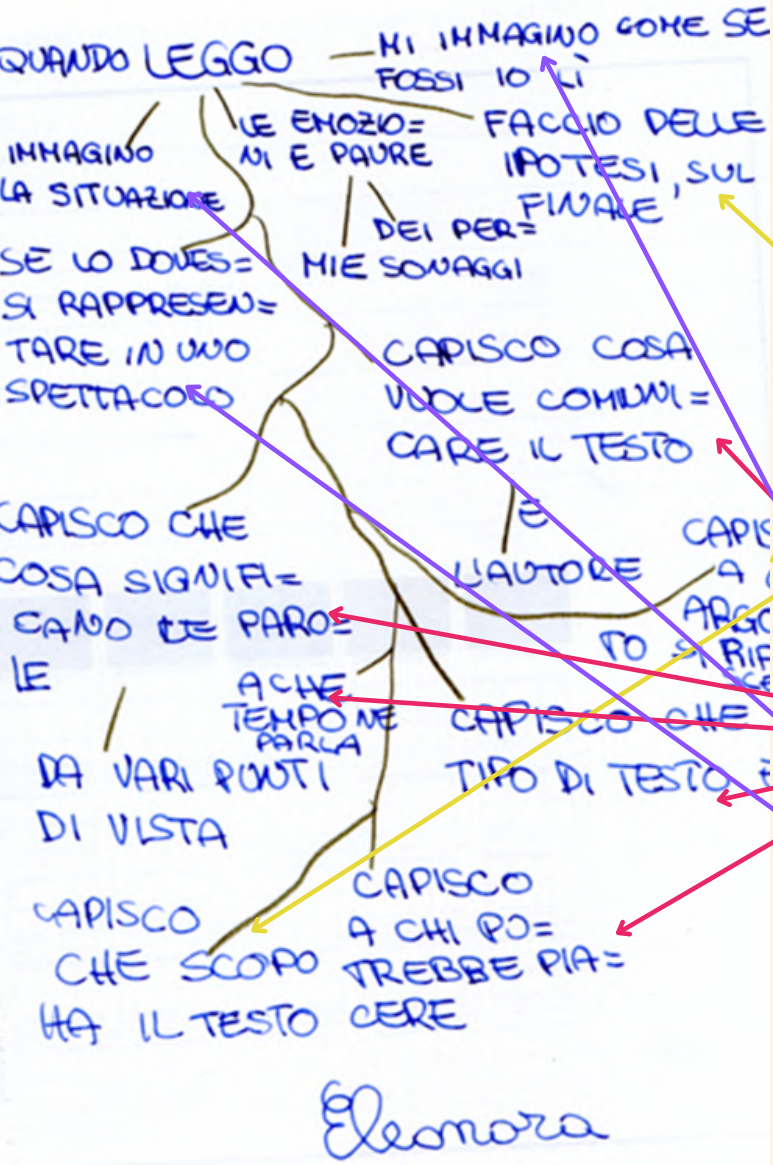 QUANDO LEGGO
MI IMMAGINO COME SE
FOSSI IO LÌ
IMMAGINO
LA SITUAZIONE
LE EMOZIO=
NI E PAURE
MIE
DEI PER=
SONAGGI
FACCIO DELLE
IPOTESI, SUL
FINALE
SE LO DOVES=
SI RAPPRESEN=
TARE IN UNO
SPETTACOLO
CAPISCO COSA
VUOLE COMUNI=
CARE IL TESTO
E
L'AUTORE
CAPISCO CHE
COSA SIGNIFI=
CANO LE PARO=
LE
DA VARI PUNTI
DI VISTA
A CHE
TEMPO NE
PARLA
CAPISCO CHE
TIPO DI TESTO
CAPIS
A
ARGO
TO SI RIF
CAPISCO
CHE SCOPO
HA IL TESTO
CAPISCO
A CHI PO=
TREBBE PIA=
CERE
Eleonora